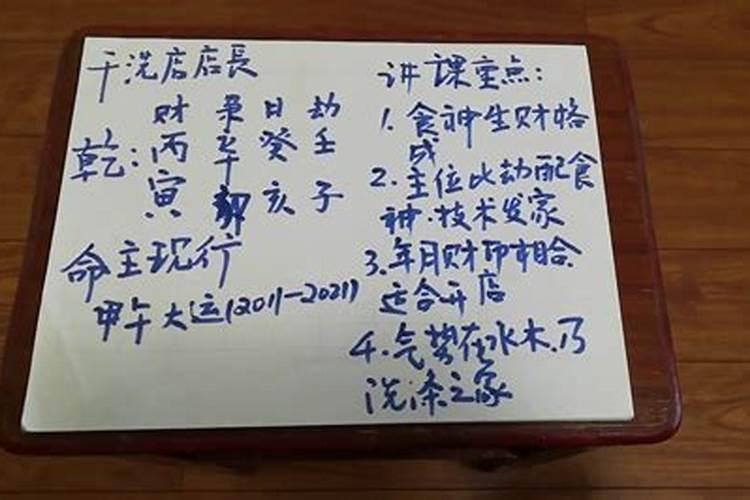 干洗店店長
财 枭 日 劫
乾: 丙 辛 癸 壬
寅 卯 亥 子
命主现行
甲午大运(2011-2021)
讲课重点:
1. 食神生财格
成
2. 主位比劫配食
神.技术发家
3. 年月财印相合
适合开店
4. 气势在水木.乃
洗涤之家